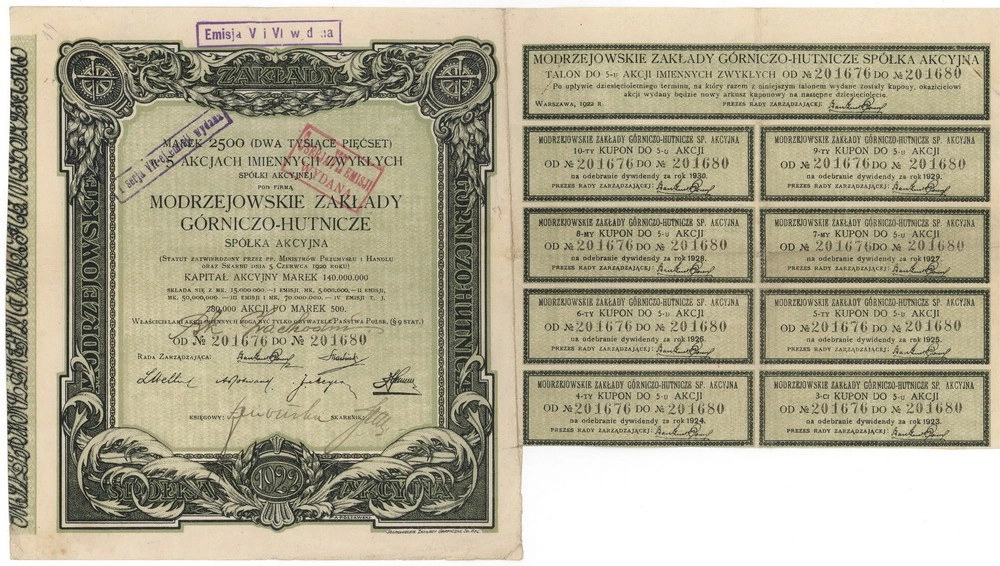 Emisja V i VI w d na
ZAKŁADY
MODRZEJOWSKIE
GÓRNICZO-HUTNI
MAREK 2500 (DWA TYSIĄCE PIĘĆSET)
5 AKCJACH IMIENNYCH ZWYKŁYCH
SPÓŁKI AKCYJNEJ
POD FIRMĄ
MODRZEJOWSKIE ZAKŁADY
GÓRNICZO-HUTNICZE
SPÓŁKA AKCYJNA
(STATUT ZATWIERDZONY PRZEZ PP. MINISTRÓW PRZEMYSŁU I HANDLU
ORAZ SKARBU DNIA 5 CZERWCA 1920 ROKU)
KAPITAŁ AKCYJNY MAREK 140.000.000
SKŁADA SIĘ Z MK. 15.000.000 — I EMISJI, MK. 5.000.000 — II EMISJI,
MK. 50.000.000 — III EMISJI I MK. 70.000.000 — IV EMISJI T. J.
280.000 AKCJI PO MAREK 500.
WŁAŚCICIELAMI AKCJI IMIENNYCH MOGĄ BYĆ TYLKO OBYWATELE PAŃSTWA POLSK. (§ 9 STAT.)
OD № 201676 DO № 201680
RADA ZARZĄDZAJĄCA:
KSIĘGOWY: SKARBNIK:
SPÓŁKA 1922 AKCYJNA
MODRZEJOWSKIE ZAKŁADY GÓRNICZO-HUTNICZE SPÓŁKA AKCYJNA
TALON DO 5-U AKCJI IMIENNYCH ZWYKŁYCH OD № 201676 DO № 201680
Po upływie dziesięcioletniego terminu, na który razem z niniejszym talonem wydane zostały kupony, okazicielowi
akcji wydany będzie nowy arkusz kuponowy na następne dziesięciolecie.
WARSZAWA, 1922 R. PREZES RADY ZARZĄDZAJĄCEJ:
MODRZEJOWSKIE ZAKŁADY GÓRNICZO-HUTNICZE SP. AKCYJNA
10-TY KUPON DO 5-U AKCJI
OD № 201676 DO № 201680
na odebranie dywidendy za rok 1930.
PREZES RADY ZARZĄDZAJĄCEJ:
MODRZEJOWSKIE ZAKŁADY GÓRNICZO-HUTNICZE SP. AKCYJNA
9-TY KUPON DO 5-U AKCJI
OD № 201676 DO № 201680
na odebranie dywidendy za rok 1929.
PREZES RADY ZARZĄDZAJĄCEJ:
MODRZEJOWSKIE ZAKŁADY GÓRNICZO-HUTNICZE SP. AKCYJNA
8-MY KUPON DO 5-U AKCJI
OD № 201676 DO № 201680
na odebranie dywidendy za rok 1928.
PREZES RADY ZARZĄDZAJĄCEJ:
MODRZEJOWSKIE ZAKŁADY GÓRNICZO-HUTNICZE SP. AKCYJNA
7-MY KUPON DO 5-U AKCJI
OD № 201676 DO № 201680
na odebranie dywidendy za rok 1927.
PREZES RADY ZARZĄDZAJĄCEJ:
MODRZEJOWSKIE ZAKŁADY GÓRNICZO-HUTNICZE SP. AKCYJNA
6-TY KUPON DO 5-U AKCJI
OD № 201676 DO № 201680
na odebranie dywidendy za rok 1926.
PREZES RADY ZARZĄDZAJĄCEJ:
MODRZEJOWSKIE ZAKŁADY GÓRNICZO-HUTNICZE SP. AKCYJNA
5-TY KUPON DO 5-U AKCJI
OD № 201676 DO № 201680
na odebranie dywidendy za rok 1925.
PREZES RADY ZARZĄDZAJĄCEJ:
MODRZEJOWSKIE ZAKŁADY GÓRNICZO-HUTNICZE SP. AKCYJNA
4-TY KUPON DO 5-U AKCJI
OD № 201676 DO № 201680
na odebranie dywidendy za rok 1924.
PREZES RADY ZARZĄDZAJĄCEJ:
MODRZEJOWSKIE ZAKŁADY GÓRNICZO-HUTNICZE SP. AKCYJNA
3-CI KUPON DO 5-U AKCJI
OD № 201676 DO № 201680
na odebranie dywidendy za rok 1923.
PREZES RADY ZARZĄDZAJĄCEJ: